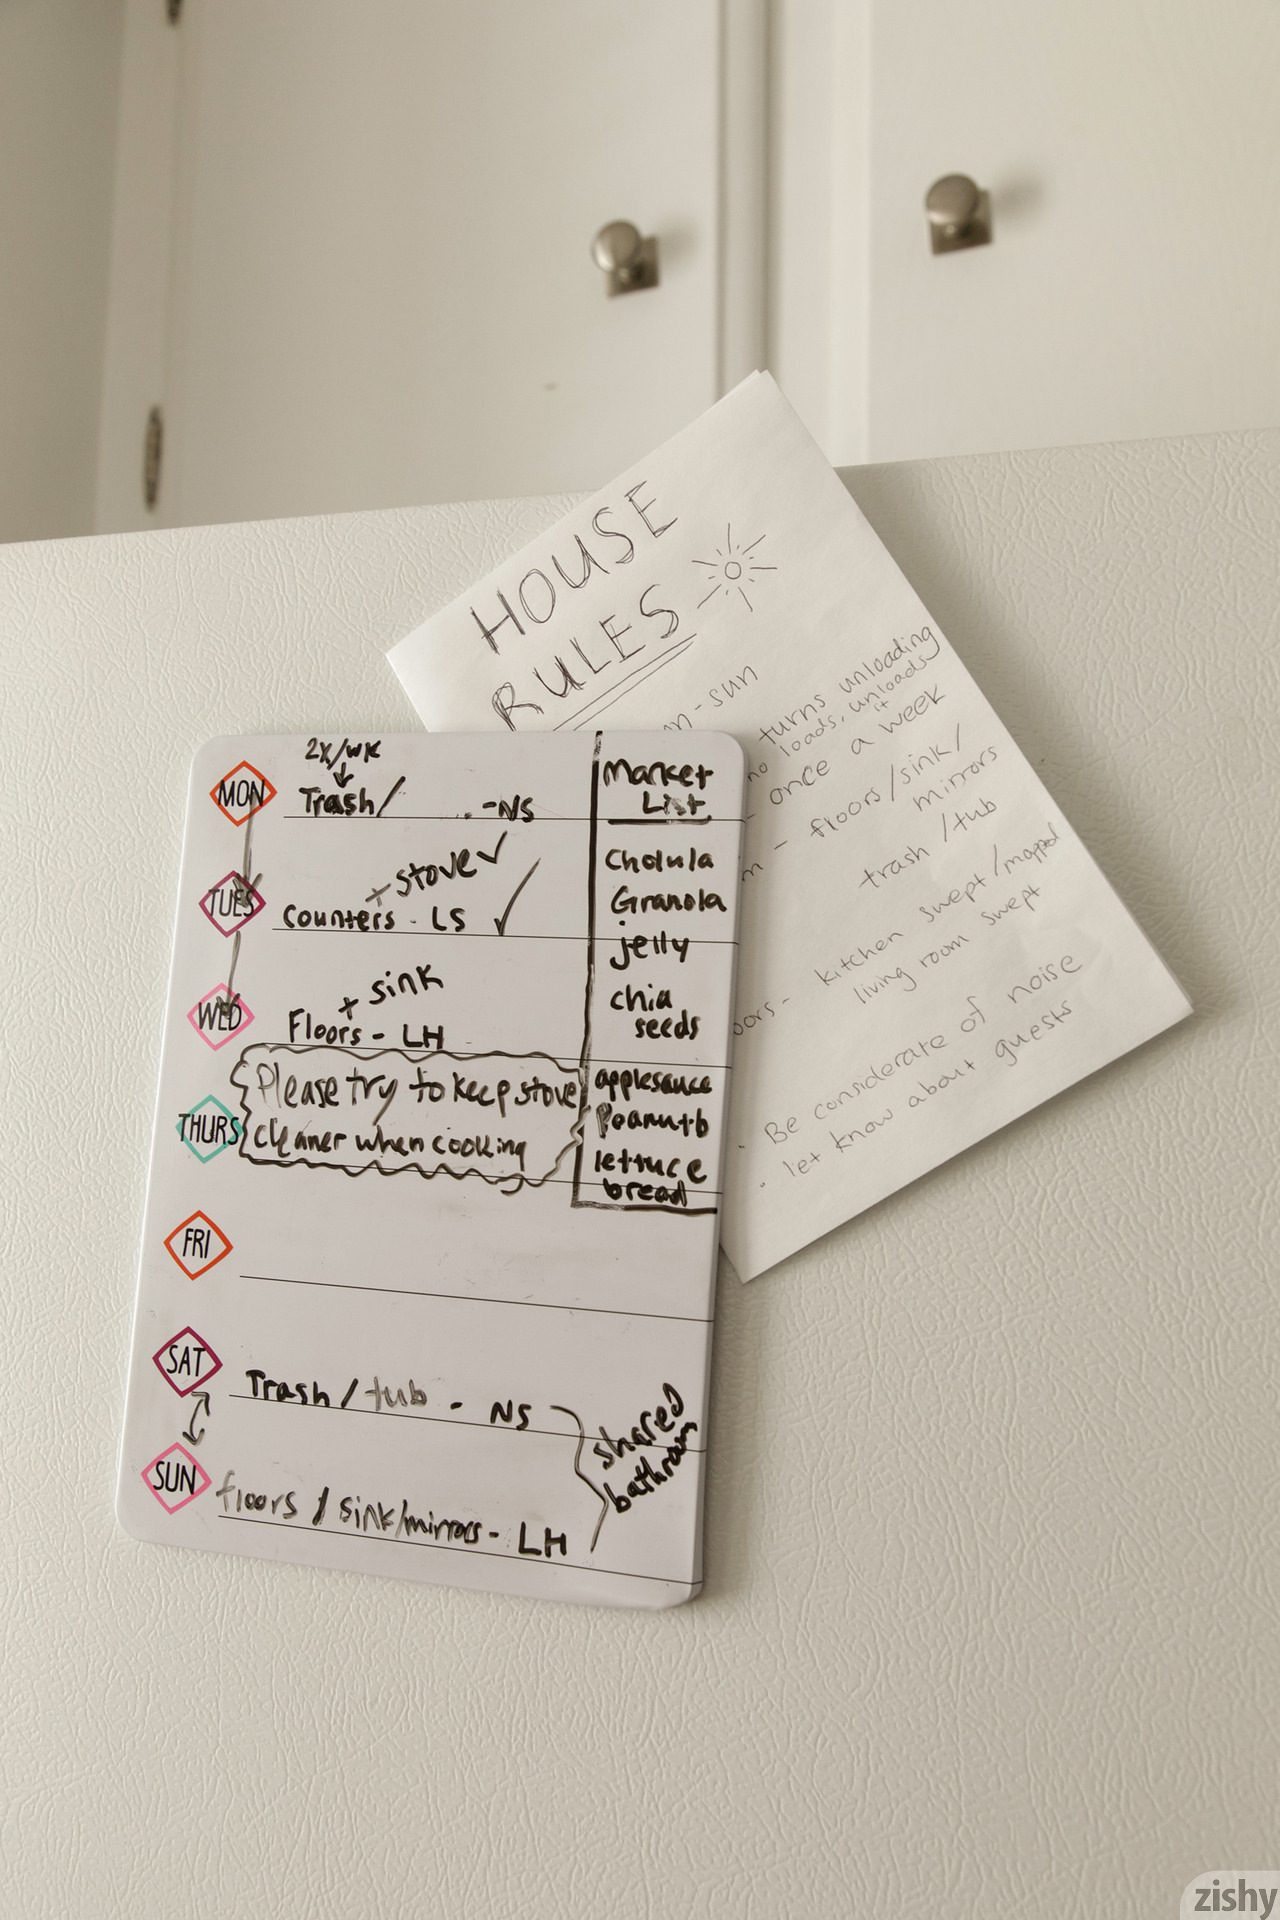 HOUSE
RULES
n-sun
turns unloading
no loads, unloads
it
once a week
m - floors/sink/
mirrors
trash/tub
oors - kitchen swept/mopped
living room swept
· Be considerate of noise
· let know about guests
2x/wk
MON Trash/ - NS
+ stove ✓
TUES counters - LS ✓
+ sink
WED Floors - LH
Please try to keep stove
THURS cleaner when cooking
FRI
SAT Trash / tub - NS
SUN floors / sink/mirrors - LH
shared
bathroom
Market
List
Cholula
Granola
jelly
chia
seeds
applesauce
Peanutb
lettuce
bread
zishy